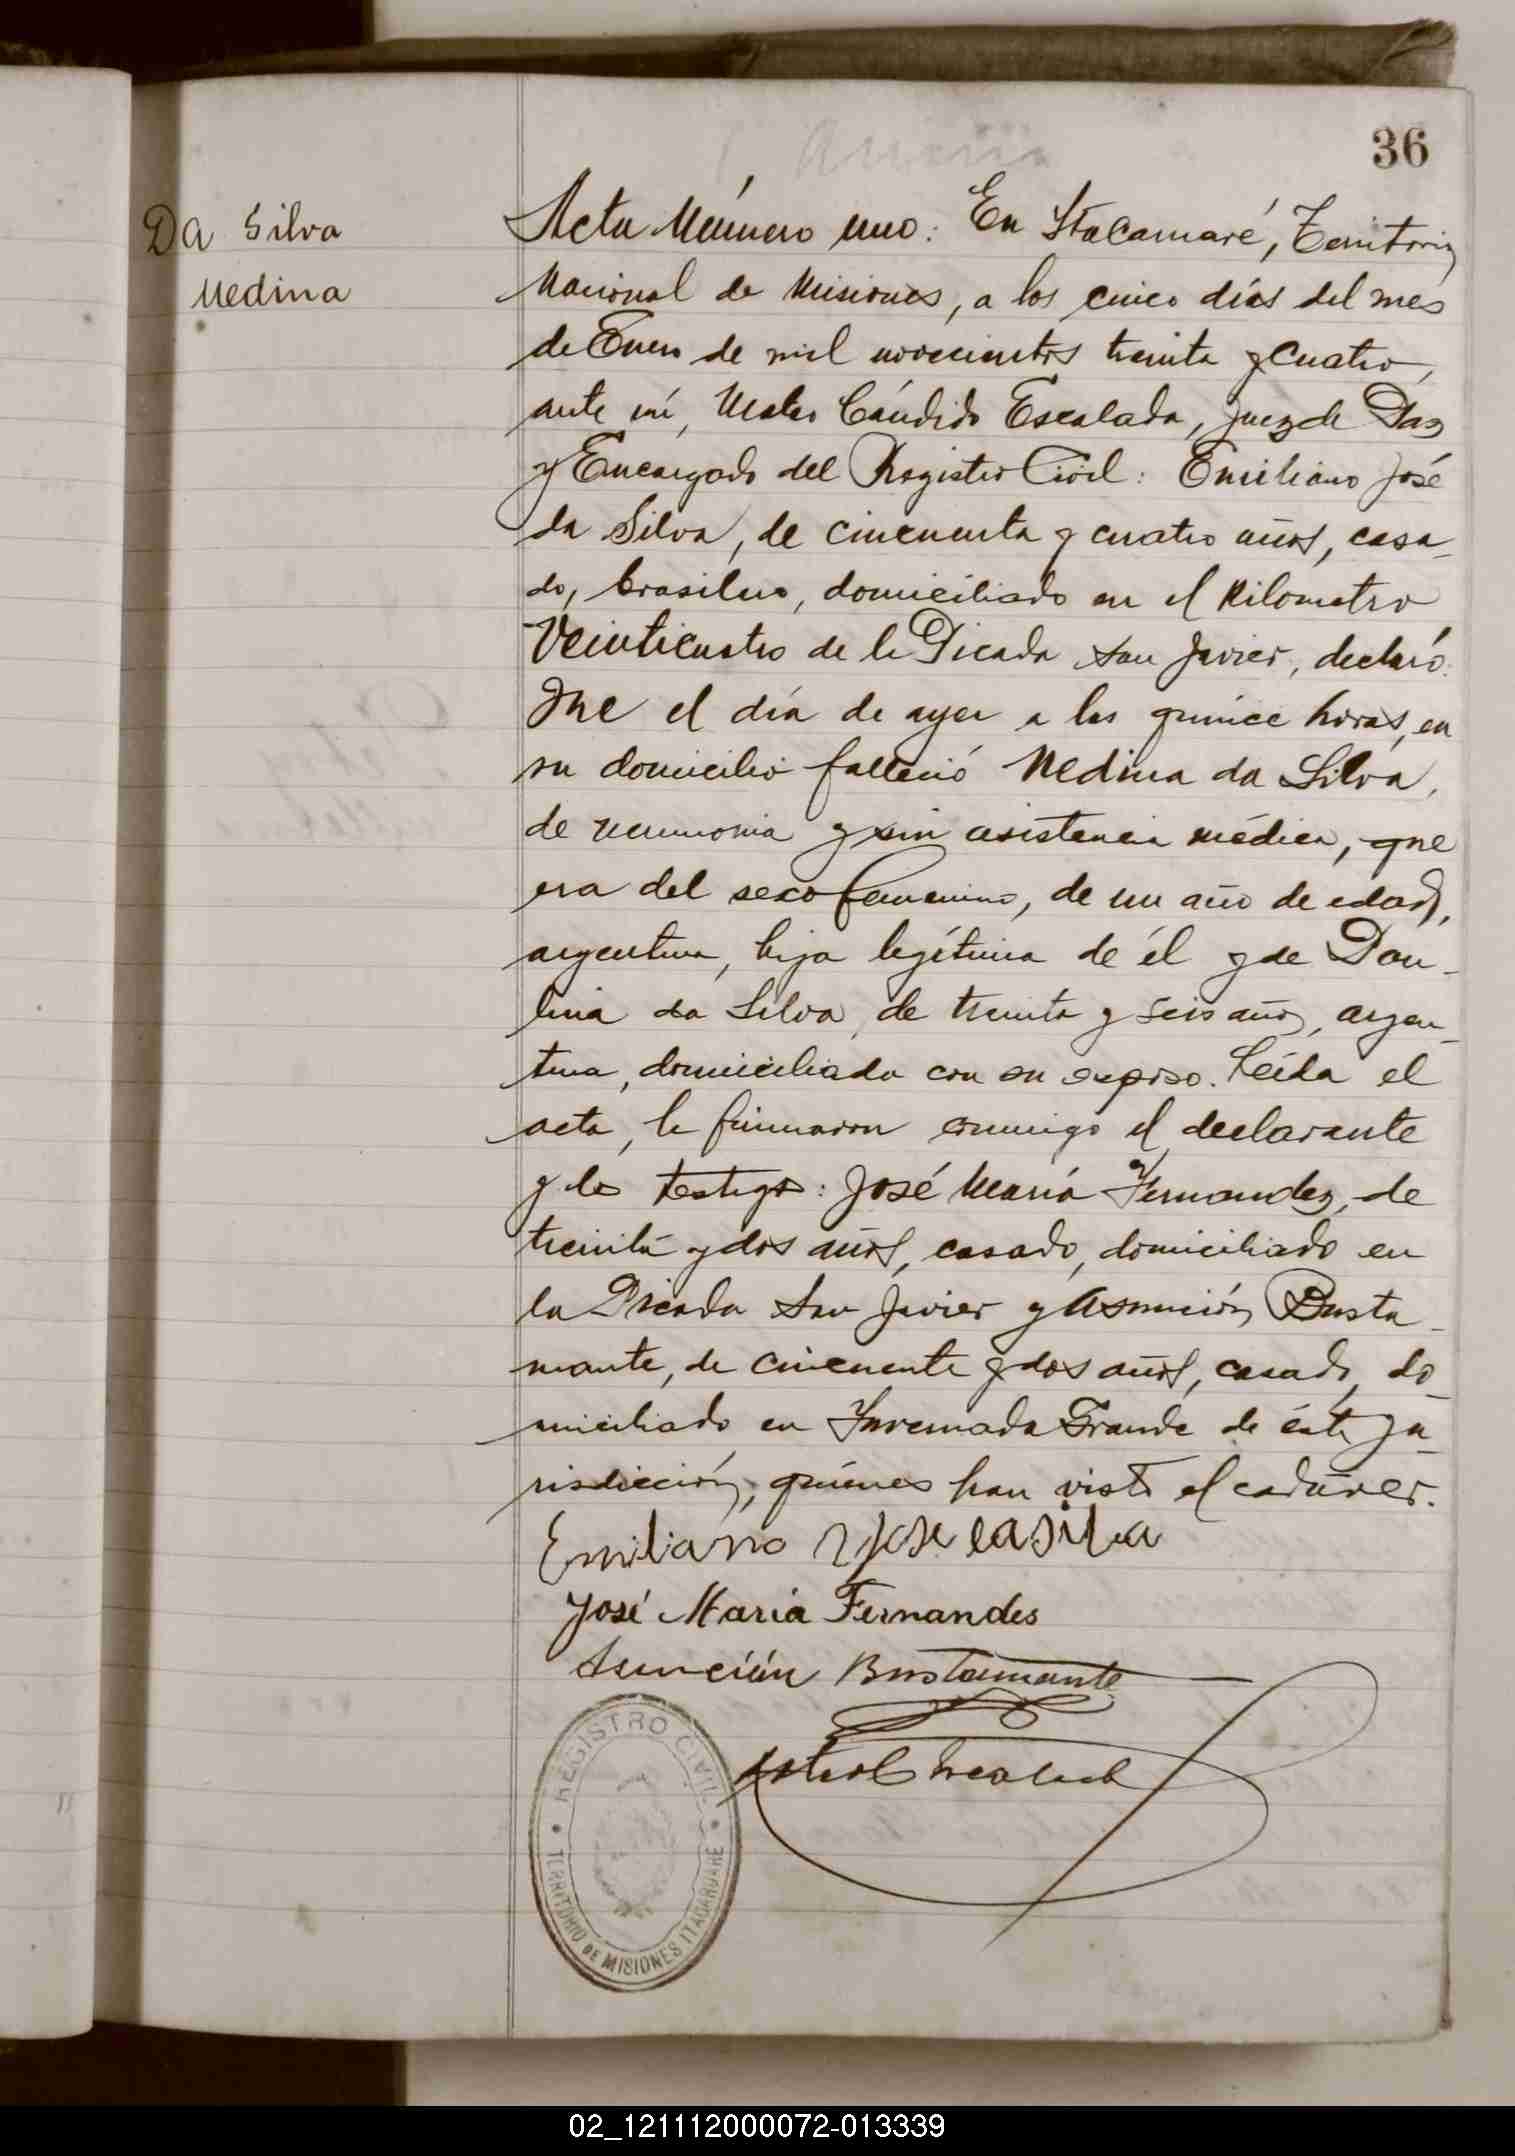 36
Da Silva
Medina
Acta Número uno: En Itacaruaré, Territorio
Nacional de Misiones, a los cinco días del mes
de Enero de mil novecientos treinta y cuatro,
ante mí, Mateo Cándido Escalada, Juez de Paz
y Encargado del Registro Civil: Emiliano José
da Silva, de cincuenta y cuatro años, casa-
do, brasilero, domiciliado en el Kilometro
Veinticuatro de la Picada San Javier, declaró:
Que el día de ayer a las quince horas, en
su domicilio falleció Medina da Silva,
de neumonia y sin asistencia médica, que
era del sexo femenino, de un año de edad,
argentina, hija legítima de él y de Pau-
lina da Silva, de treinta y seis años, argen-
tina, domiciliada con su esposo. Leída el
acta, la firmaron conmigo el declarante
y los testigos: José María Fernandez, de
treinta y dos años, casado, domiciliado en
la Picada San Javier y Asunción Busta-
mante, de cincuenta y dos años, casado, do-
miciliado en Invernada Grande de ésta ju-
risdicción, quiénes han visto el cadáver.
Emiliano Jose da Silva
José Maria Fernandes
Asunción Bustamante
REGISTRO CIVIL
TERRITORIO DE MISIONES ITACARUARE
02_121112000072-013339